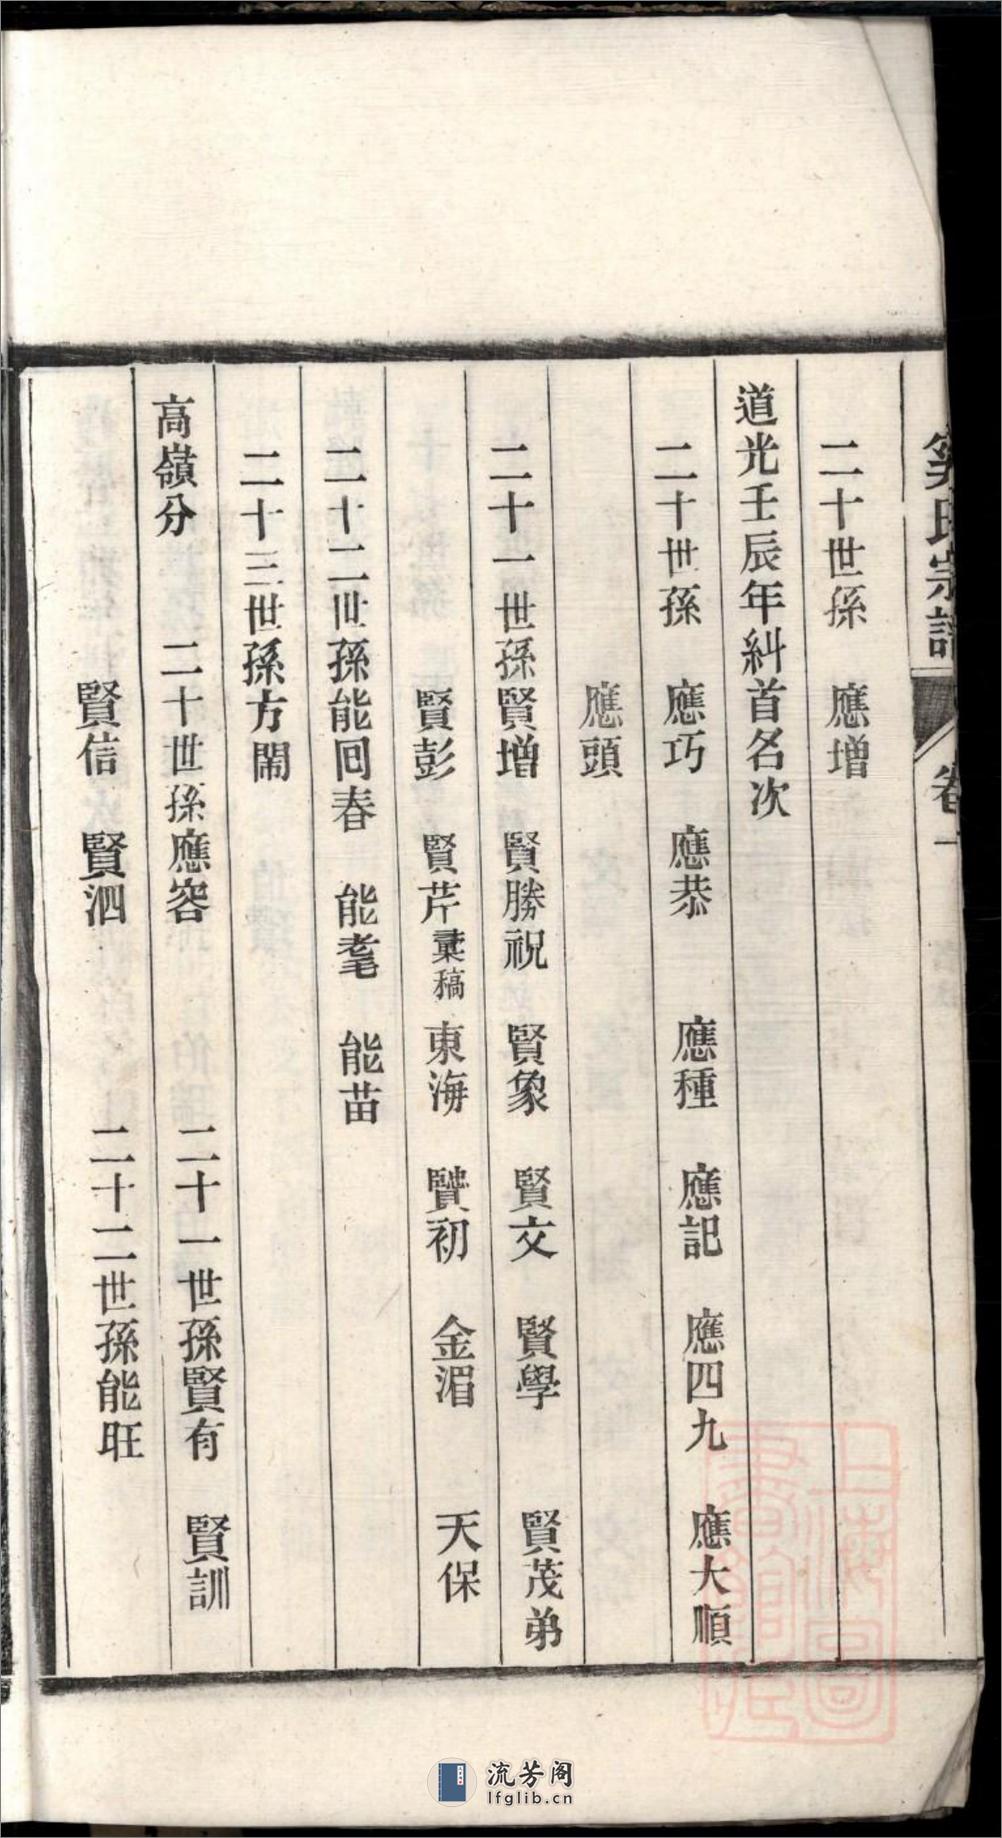 氏宗譜 卷一
二十世孫 應增
道光壬辰年糾首名次
二十世孫 應巧 應恭 應種 應記 應四九 應大順
應頭
二十一世孫賢增 賢勝祝 賢象 賢文 賢學 賢茂弟
賢彭 賢芹彙稿 東海 賢初 金湄 天保
二十二世孫能回春 能耄 能苗
二十三世孫方閙
高嶺分 二十世孫應容 二十一世孫賢有 賢訓
賢信 賢泗 二十二世孫能旺
上海圖書館藏
流芳阁
lfglib.cn